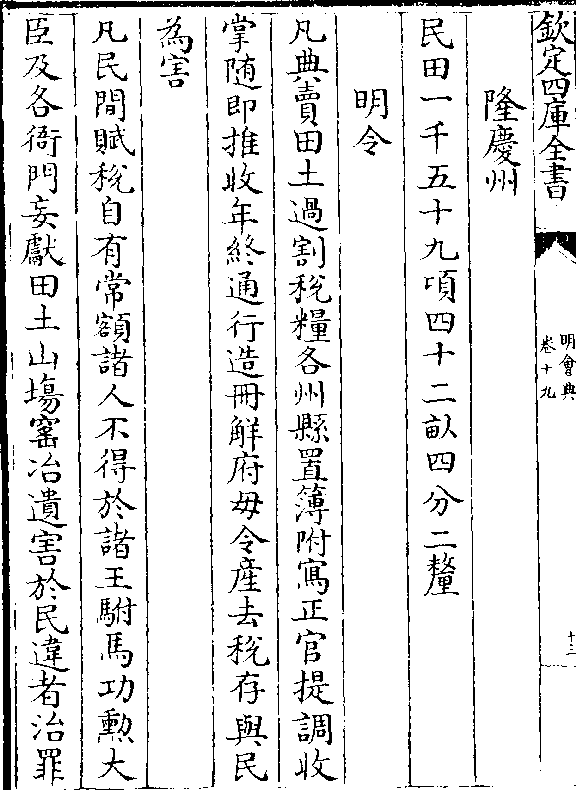 欽定四庫全書
明會典
卷十九
十三
隆慶州
民田一千五十九項四十二畝四分二釐
明令
凡典賣田土過割稅糧各州縣置簿附寫正官提調收
掌随即推收年終通行造冊解府毋令産去稅存與民
為害
凡民間賦稅自有常額諸人不得於諸王駙馬功勲大
臣及各衙門妄獻田土山塲窰冶遺害於民違者治罪